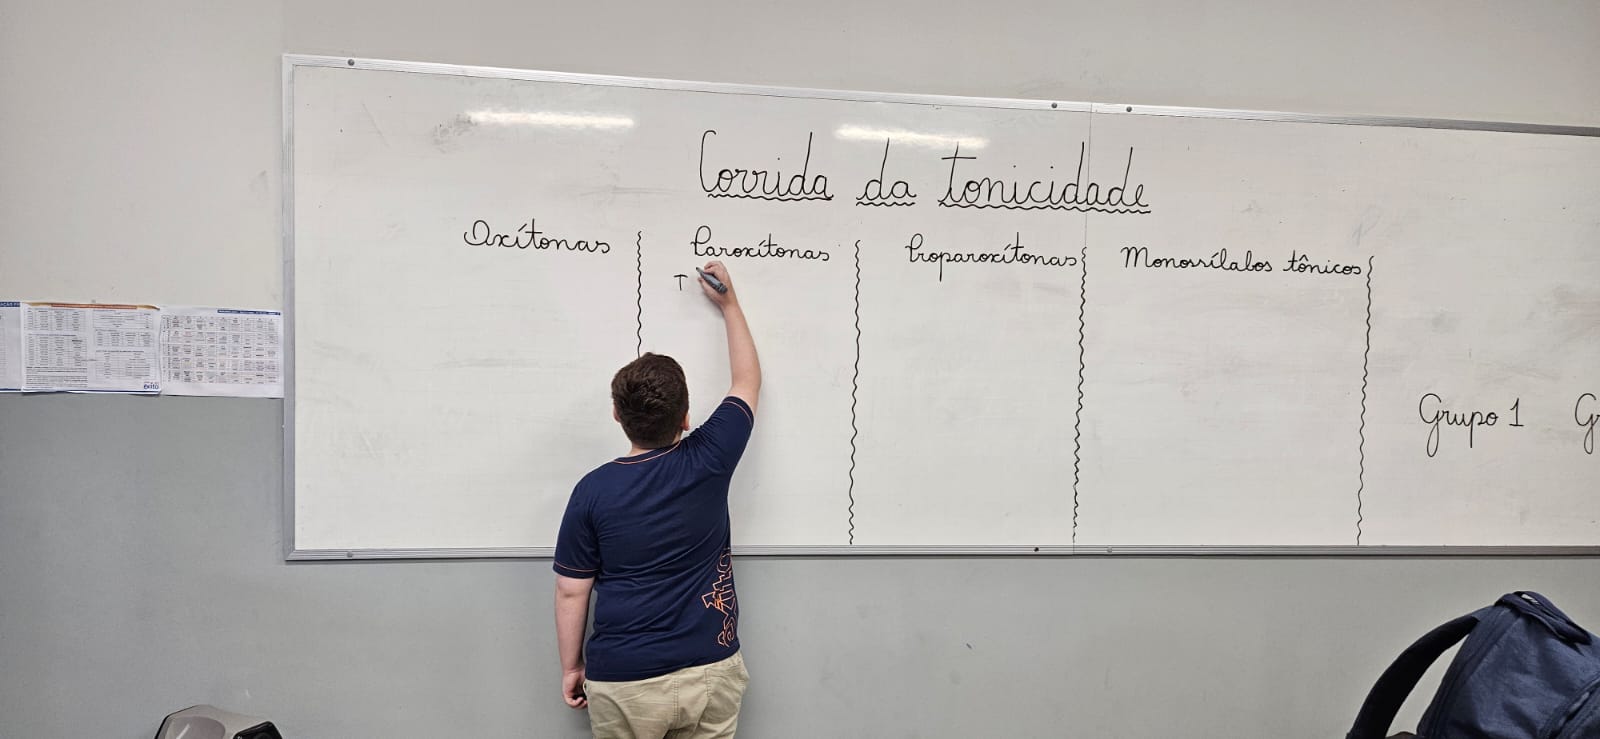 Corrida da tonicidade
Oxítonas Paroxítonas Proparoxítonas Monossílabos tônicos
T
Grupo 1 Gr
êxito
êxito